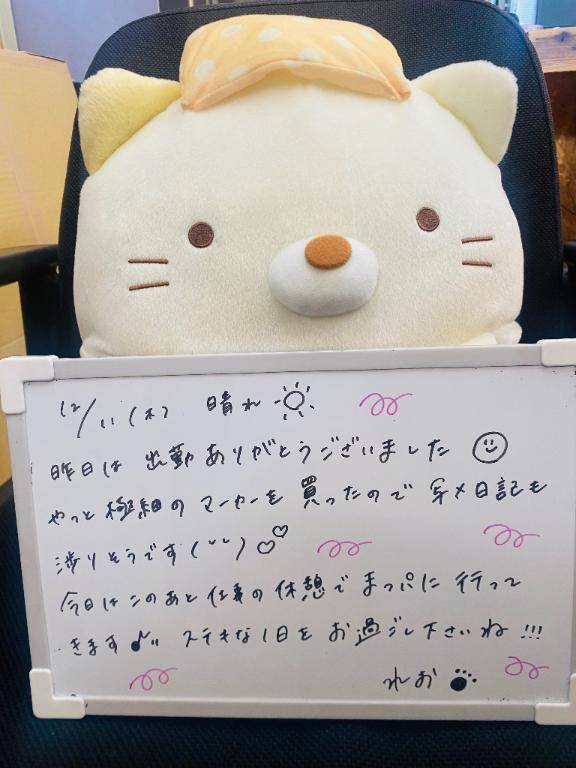 12/11(木) 晴れ
昨日は 出勤ありがとうございました
やっと極細のマーカーを買ったので写メ日記も
渉りそうです(ᵕᵕ)♡♡
今日はこのあと仕事の休憩でまつパに行って
きます♪ ステキな1日をお過ごし下さいね!!!
れお